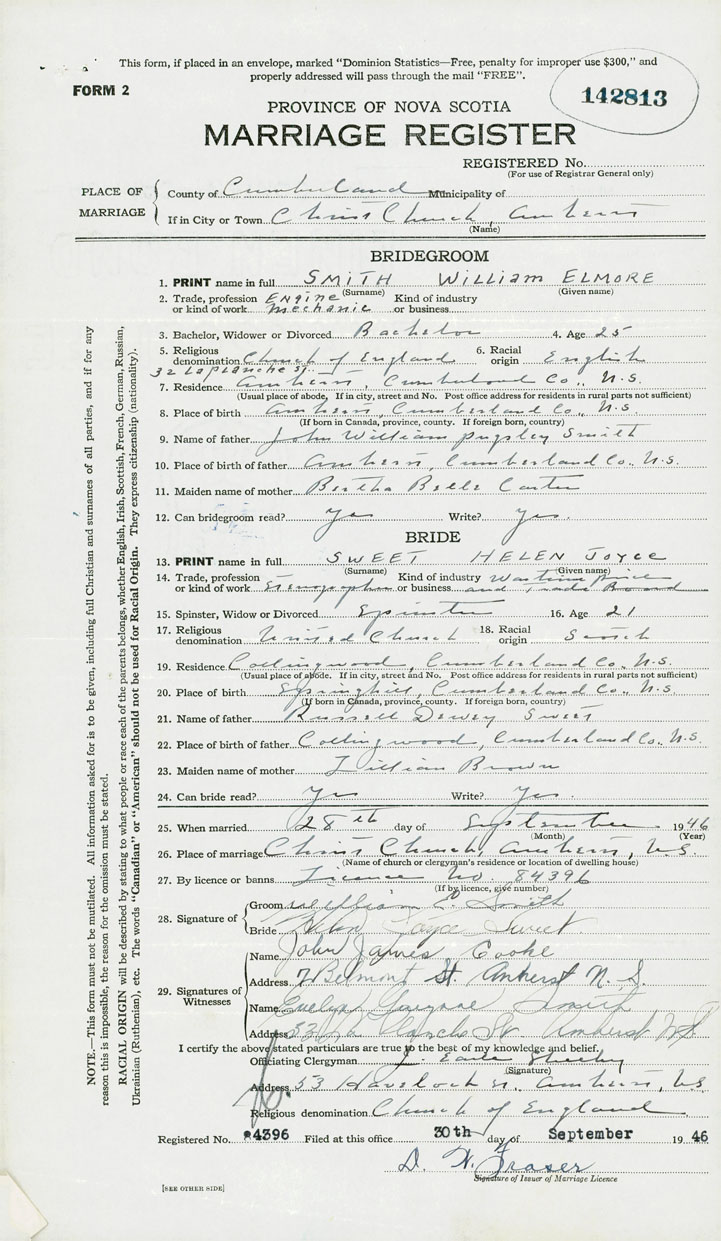 This form, if placed in an envelope, marked "Dominion Statistics—Free, penalty for improper use $300," and
properly addressed will pass through the mail "FREE".
FORM 2
142813
PROVINCE OF NOVA SCOTIA
MARRIAGE REGISTER
REGISTERED No.
(For use of Registrar General only)
PLACE OF MARRIAGE
County of Cumberland Municipality of
If in City or Town Christ Church, Amherst
(Name)
BRIDEGROOM
1. PRINT name in full SMITH WILLIAM ELMORE
(Surname) (Given name)
2. Trade, profession or kind of work ENGINE Mechanic Kind of industry or business
3. Bachelor, Widower or Divorced Bachelor 4. Age 25
5. Religious denomination Church of England 6. Racial origin English
32 Laplanche St.
7. Residence Amherst, Cumberland Co., N.S.
(Usual place of abode. If in city, street and No. Post office address for residents in rural parts not sufficient)
8. Place of birth Amherst, Cumberland Co., N.S.
(If born in Canada, province, county. If foreign born, country)
9. Name of father John William Pugsley Smith
10. Place of birth of father Amherst, Cumberland Co., N.S.
11. Maiden name of mother Bertha Belle Carter
12. Can bridegroom read? Yes Write? Yes.
BRIDE
13. PRINT name in full SWEET HELEN JOYCE
(Surname) (Given name)
14. Trade, profession or kind of work Stenographer Kind of industry or business Wartime Price and Trade Board
15. Spinster, Widow or Divorced Spinster 16. Age 21
17. Religious denomination United Church 18. Racial origin Scotch
19. Residence Collingwood, Cumberland Co. N.S.
(Usual place of abode. If in city, street and No. Post office address for residents in rural parts not sufficient)
20. Place of birth Springhill, Cumberland Co., N.S.
(If born in Canada, province, county. If foreign born, country)
21. Name of father Russell Dewey Sweet
22. Place of birth of father Collingwood, Cumberland Co., N.S.
23. Maiden name of mother Lillian Brown
24. Can bride read? Yes Write? Yes.
25. When married 28th day of September 1946
(Month) (Year)
26. Place of marriage Christ Church, Amherst, N.S.
(Name of church or clergyman's residence or location of dwelling house)
27. By licence or banns Licence No. 84396
(If by licence, give number)
28. Signature of
Groom William E. Smith
Bride Helen Joyce Sweet
29. Signatures of Witnesses
Name John James Cooke
Address 7 Belmont St. Amherst N.S.
Name Evelyn Smith
Address St Amherst NS
I certify the above stated particulars are true to the best of my knowledge and belief.
Officiating Clergyman Earle
(Signature)
Address 53 Havelock St., Amherst, N.S.
Religious denomination Church of England
Registered No. *4396 Filed at this office 30th day of September 1946
D. W. Fraser
Signature of Issuer of Marriage Licence
[SEE OTHER SIDE]
NOTE.—This form must not be mutilated. All information asked for is to be given, including full Christian and surnames of all parties, and if for any
reason this is impossible, the reason for the omission must be stated.
RACIAL ORIGIN will be described by stating to what people or race each of the parents belongs, whether English, Irish, Scottish, French, German, Russian,
Ukrainian (Ruthenian), etc. The words "Canadian" or "American" should not be used for Racial Origin. They express citizenship (nationality).